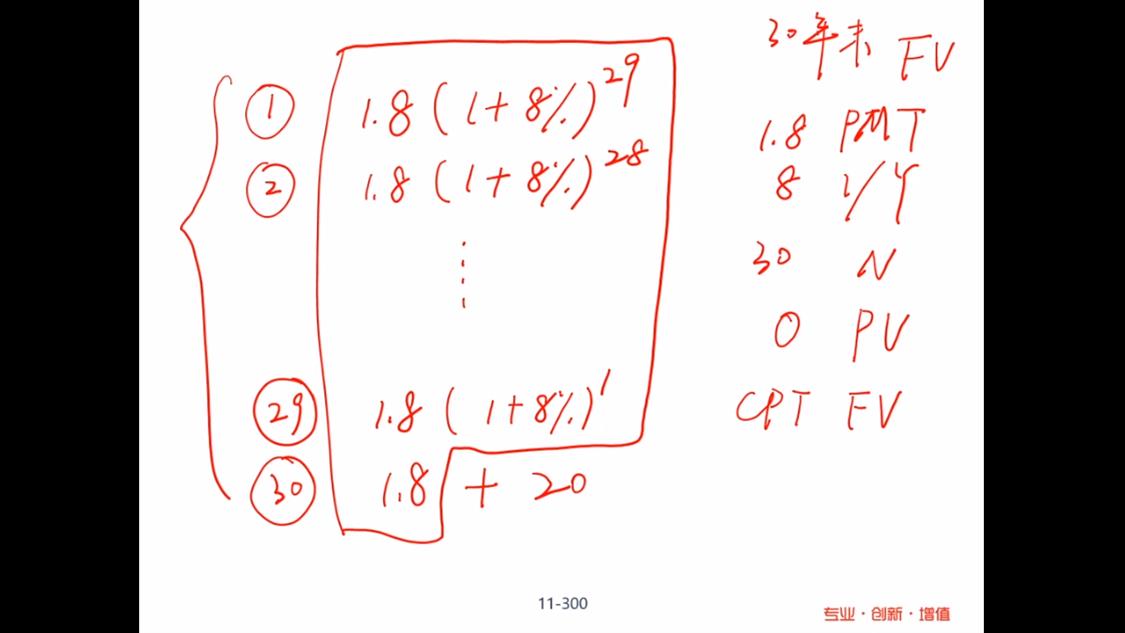 ① 1.8 (1+8%)^29
② 1.8 (1+8%)^28
⋮
㉙ 1.8 (1+8%)^1
㉚ 1.8 + 20
30年末 FV
1.8 PMT
8 I/Y
30 N
0 PV
CPT FV
11-300
专业·创新·增值